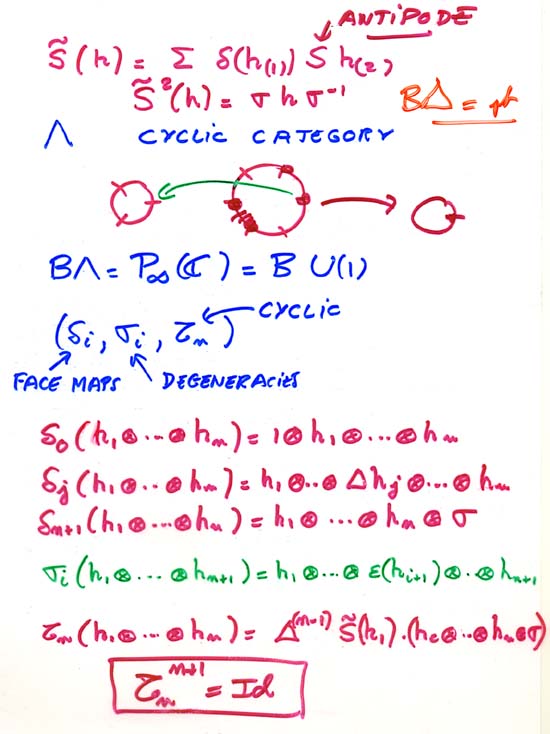 ANTIPODE
S̃(h) = Σ δ(h(1)) S h(2)
S̃²(h) = σ h σ⁻¹
BΔ = pt
Λ CYCLIC CATEGORY
BΛ = P∞(ℂ) = B U(1)
(δi, σi, τn) CYCLIC
FACE MAPS DEGENERACIES
δ0(h1⊗...⊗hn) = 1⊗h1⊗...⊗hn
δj(h1⊗...⊗hn) = h1⊗..⊗Δhj⊗...⊗hn
δn+1(h1⊗...⊗hn) = h1⊗...⊗hn⊗σ
σi(h1⊗...⊗hn+1) = h1⊗...⊗ε(hi+1)⊗..⊗hn+1
τn(h1⊗...⊗hn) = Δ⁽ⁿ⁻¹⁾ S̃(h1).(h2⊗..⊗hn⊗σ)
τnⁿ⁺¹ = Id